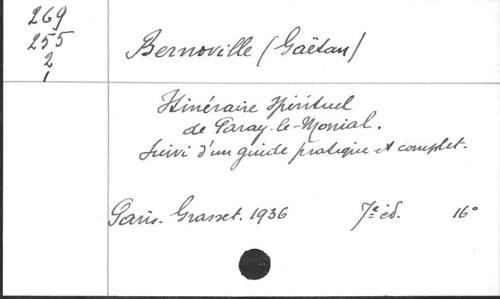 269
255
2
1
Bernoville (Gaëtan)
Itinéraire Spirituel
de Paray-le-Monial.
Suivi d'un guide pratique et complet.
Paris. Grasset. 1936 7e éd. 16°